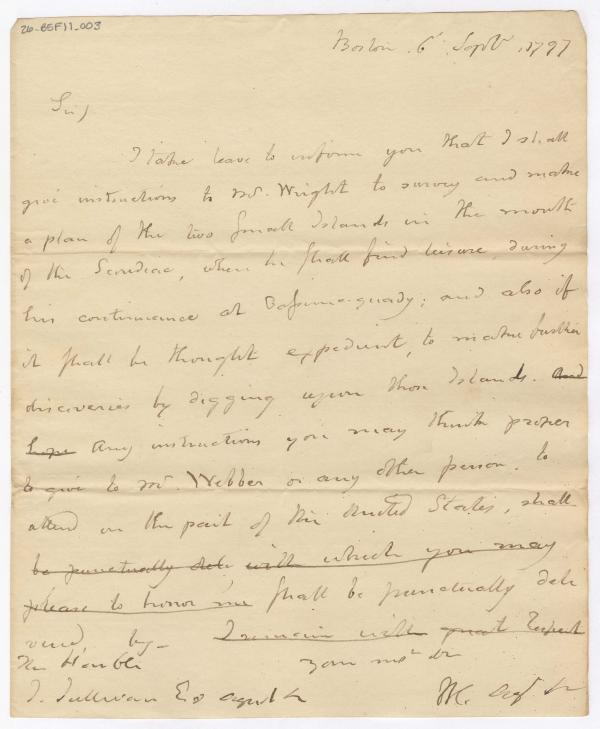 26-BSF11-003
Boston 6 Septr. 1797
Sir)
I take leave to inform you that I shall
give instructions to Mr. Wright to survey and make
a plan of the two small Islands in the mouth
of the Scoudiac, when he shall find leisure, during
his continuance at Passamaquady; and also if
it shall be thought expedient, to make further
discoveries by digging upon those Islands. and
hope any instructions you may think proper
to give to Mr. Webber or any other person, to
attend on the part of the United States, shall
be punctually deli with which you may
please to honor me shall be punctually deli
vered by- I remain with great Respect
The Honble your mo
J. Sullivan Esq agent &